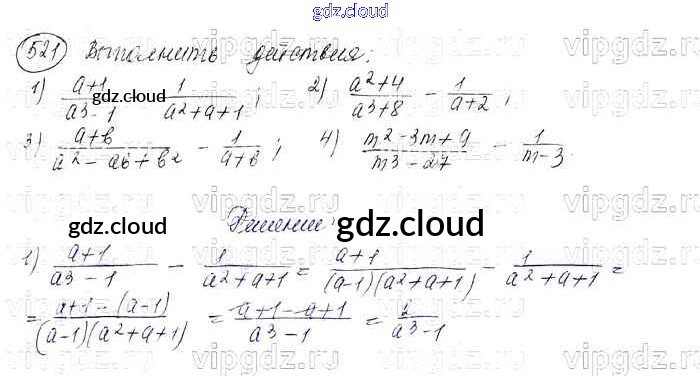 gdz.cloud
521 Выполнить действия:
1) a+1/a3-1 - 1/a2+a+1; 2) a2+4/a3+8 - 1/a+2,
gdz.cloud
3) a+b/a2-ab+b2 - 1/a+b; 4) m2-3m+9/m3-27 - 1/m-3.
Решение:
gdz.cloud
gdz.cloud
1) a+1/a3-1 - 1/a2+a+1 = a+1/(a-1)(a2+a+1) - 1/a2+a+1 =
= a+1-(a-1)/(a-1)(a2+a+1) = a+1-a+1/a3-1 = 2/a3-1
gdz.cloud
vipgdz.ru